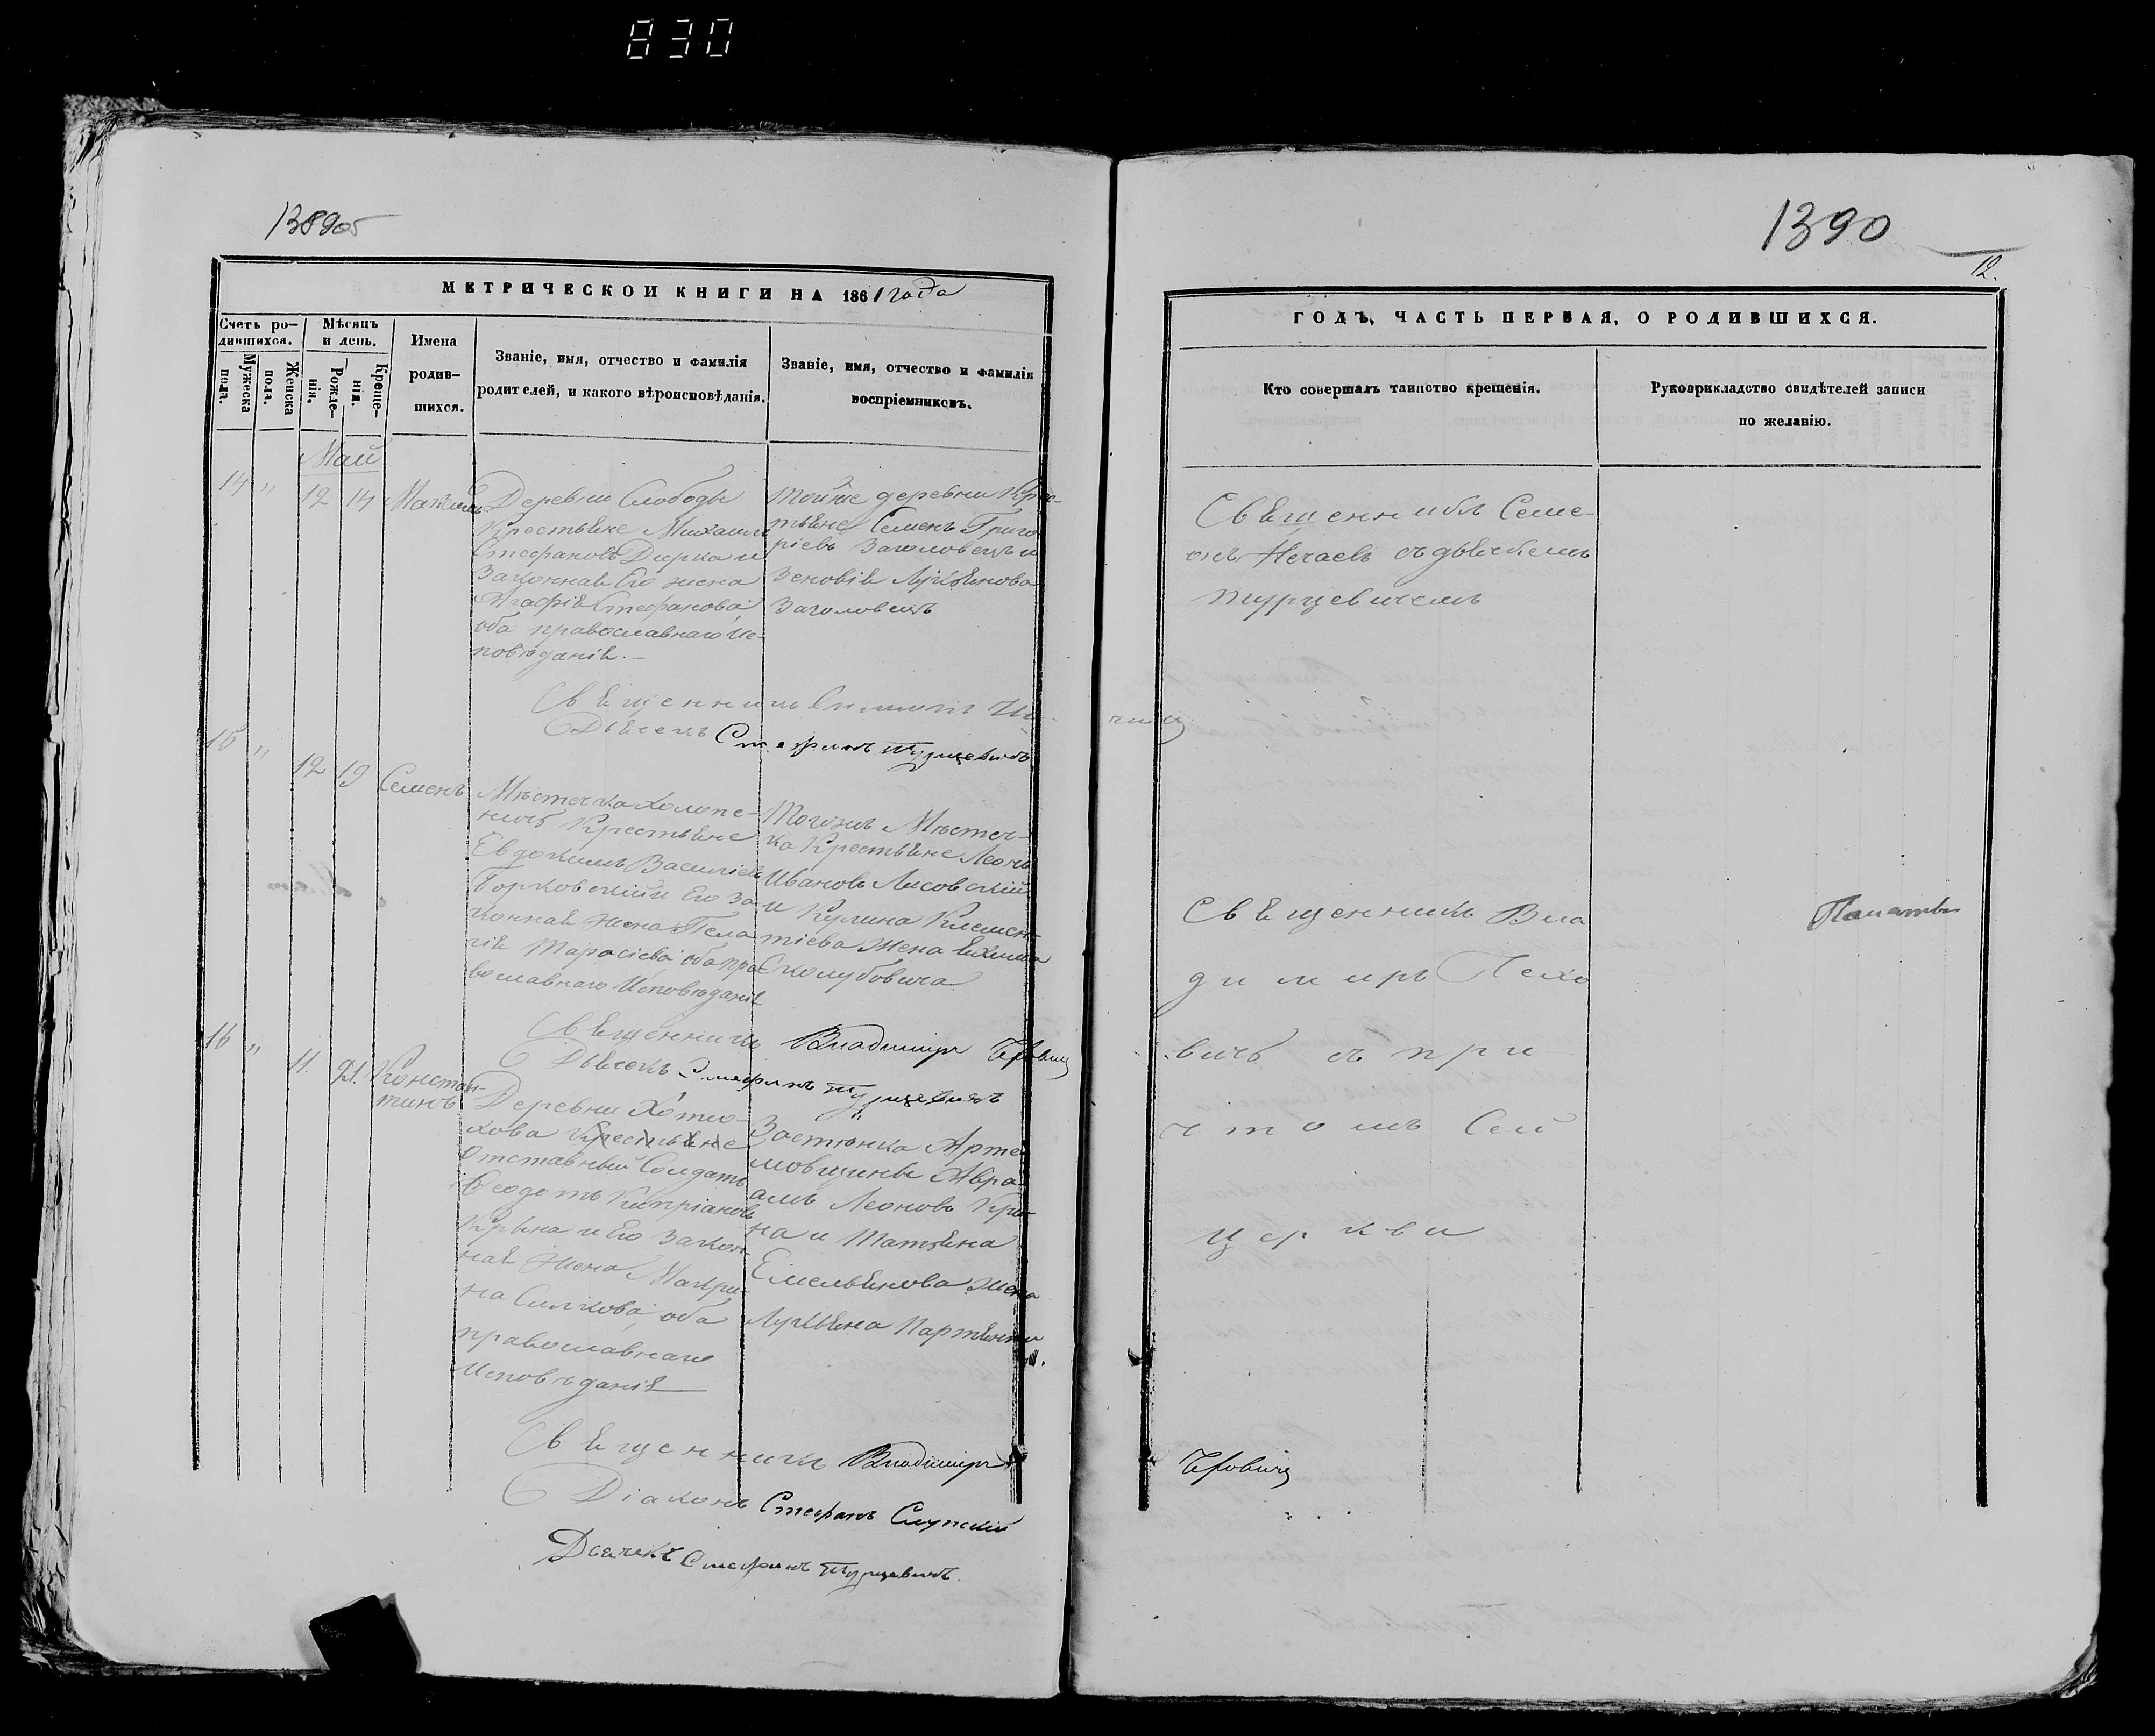 830
1390
12.
МЕТРИЧЕСКОЙ КНИГИ НА 1861 года
Счетъ ро-
дившихся.
Мужеска
пола.
Женска
пола.
Мѣсяцъ
и день.
Рожде-
нія.
Креще-
нія.
Имена
родив-
шихся.
Званіе, имя, отчество и фамилія
родителей, и какого вѣроисповѣданія.
Званіе, имя, отчество и фамилія
воспріемниковъ.
Май
14 " 12 14
Деревни Слободы
Крестьяне Михаилъ
Стефановъ Дюрка и
Законная Его жена
Агафія Стефанова,
оба православнаго Ис-
повѣданія. –
Тойже деревни Крес-
тьяне Семенъ Григо
ріевъ Заголовецъ и
Зеновія Лукьянова
Заголовецъ
Священникъ
Дьячекъ Стефанъ Турцевичъ
15 " 12 19 Семенъ
Мѣстечка Холопе-
ничъ Крестьяне
Евдокимъ Василіевъ
Борковскій и Его За-
конная Жена Пела-
гія Тарасіева, оба пра-
вославнаго Исповѣданія
Тогожъ Мѣстеч-
ка Крестьяне Леонъ
Ивановъ Лисовскій
и Кулина Клемен-
тіева Жена
Сколубовича
Священникъ Владиміръ
Дьячекъ Стефанъ Турцевичъ
16 " 11. 21. Констан-
тинъ
Деревни Хотю-
хова Крестьяне
Отставный Солдатъ
Феодотъ Кипріановъ
и Его Закон-
ная Жена Макри-
на Силкова, оба
православнаго
Исповѣданія
Застѣнка Арте-
мовщины Авра-
амъ Леоновъ Кры-
на и Татьяна
Емельянова жена
Лукьяна
Священникъ Владиміръ
Діаконъ Стефанъ Слупскій
Дьячекъ Стефанъ Турцевичъ.
ГОДЪ, ЧАСТЬ ПЕРВАЯ, О РОДИВШИХСЯ.
Кто совершалъ таинство крещенія.
Рукоприкладство свидѣтелей записи
по желанію.
Священникъ Семе-
онъ Нечаевъ съ дьячкемъ
Турцевичемъ
Священникъ Вла
димиръ
вичъ съ при
чтомъ Сей
церкви